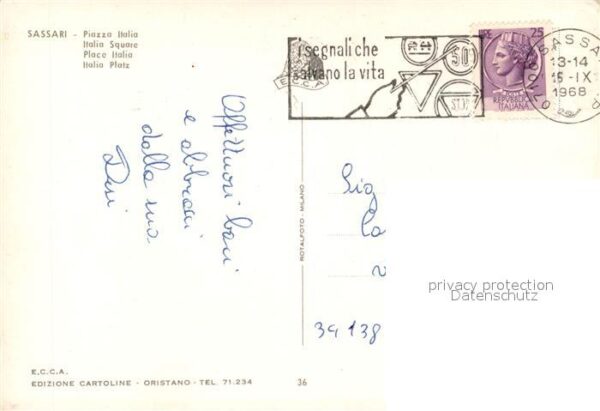 SASSARI - Piazza Italia
Italia Square
Place Italia
Italia Platz
i segnali che
salvano la vita
50
STOP
E.C.C.A.
LIRE 25
REPVBBLICA
ITALIANA
SASSARI
13-14
15-IX
1968
Affettuosi baci
e abbracci
dalla tua
ROTALFOTO - MILANO
Sig
privacy protection
Datenschutz
39138
E.C.C.A.
EDIZIONE CARTOLINE - ORISTANO - TEL. 71.234
36